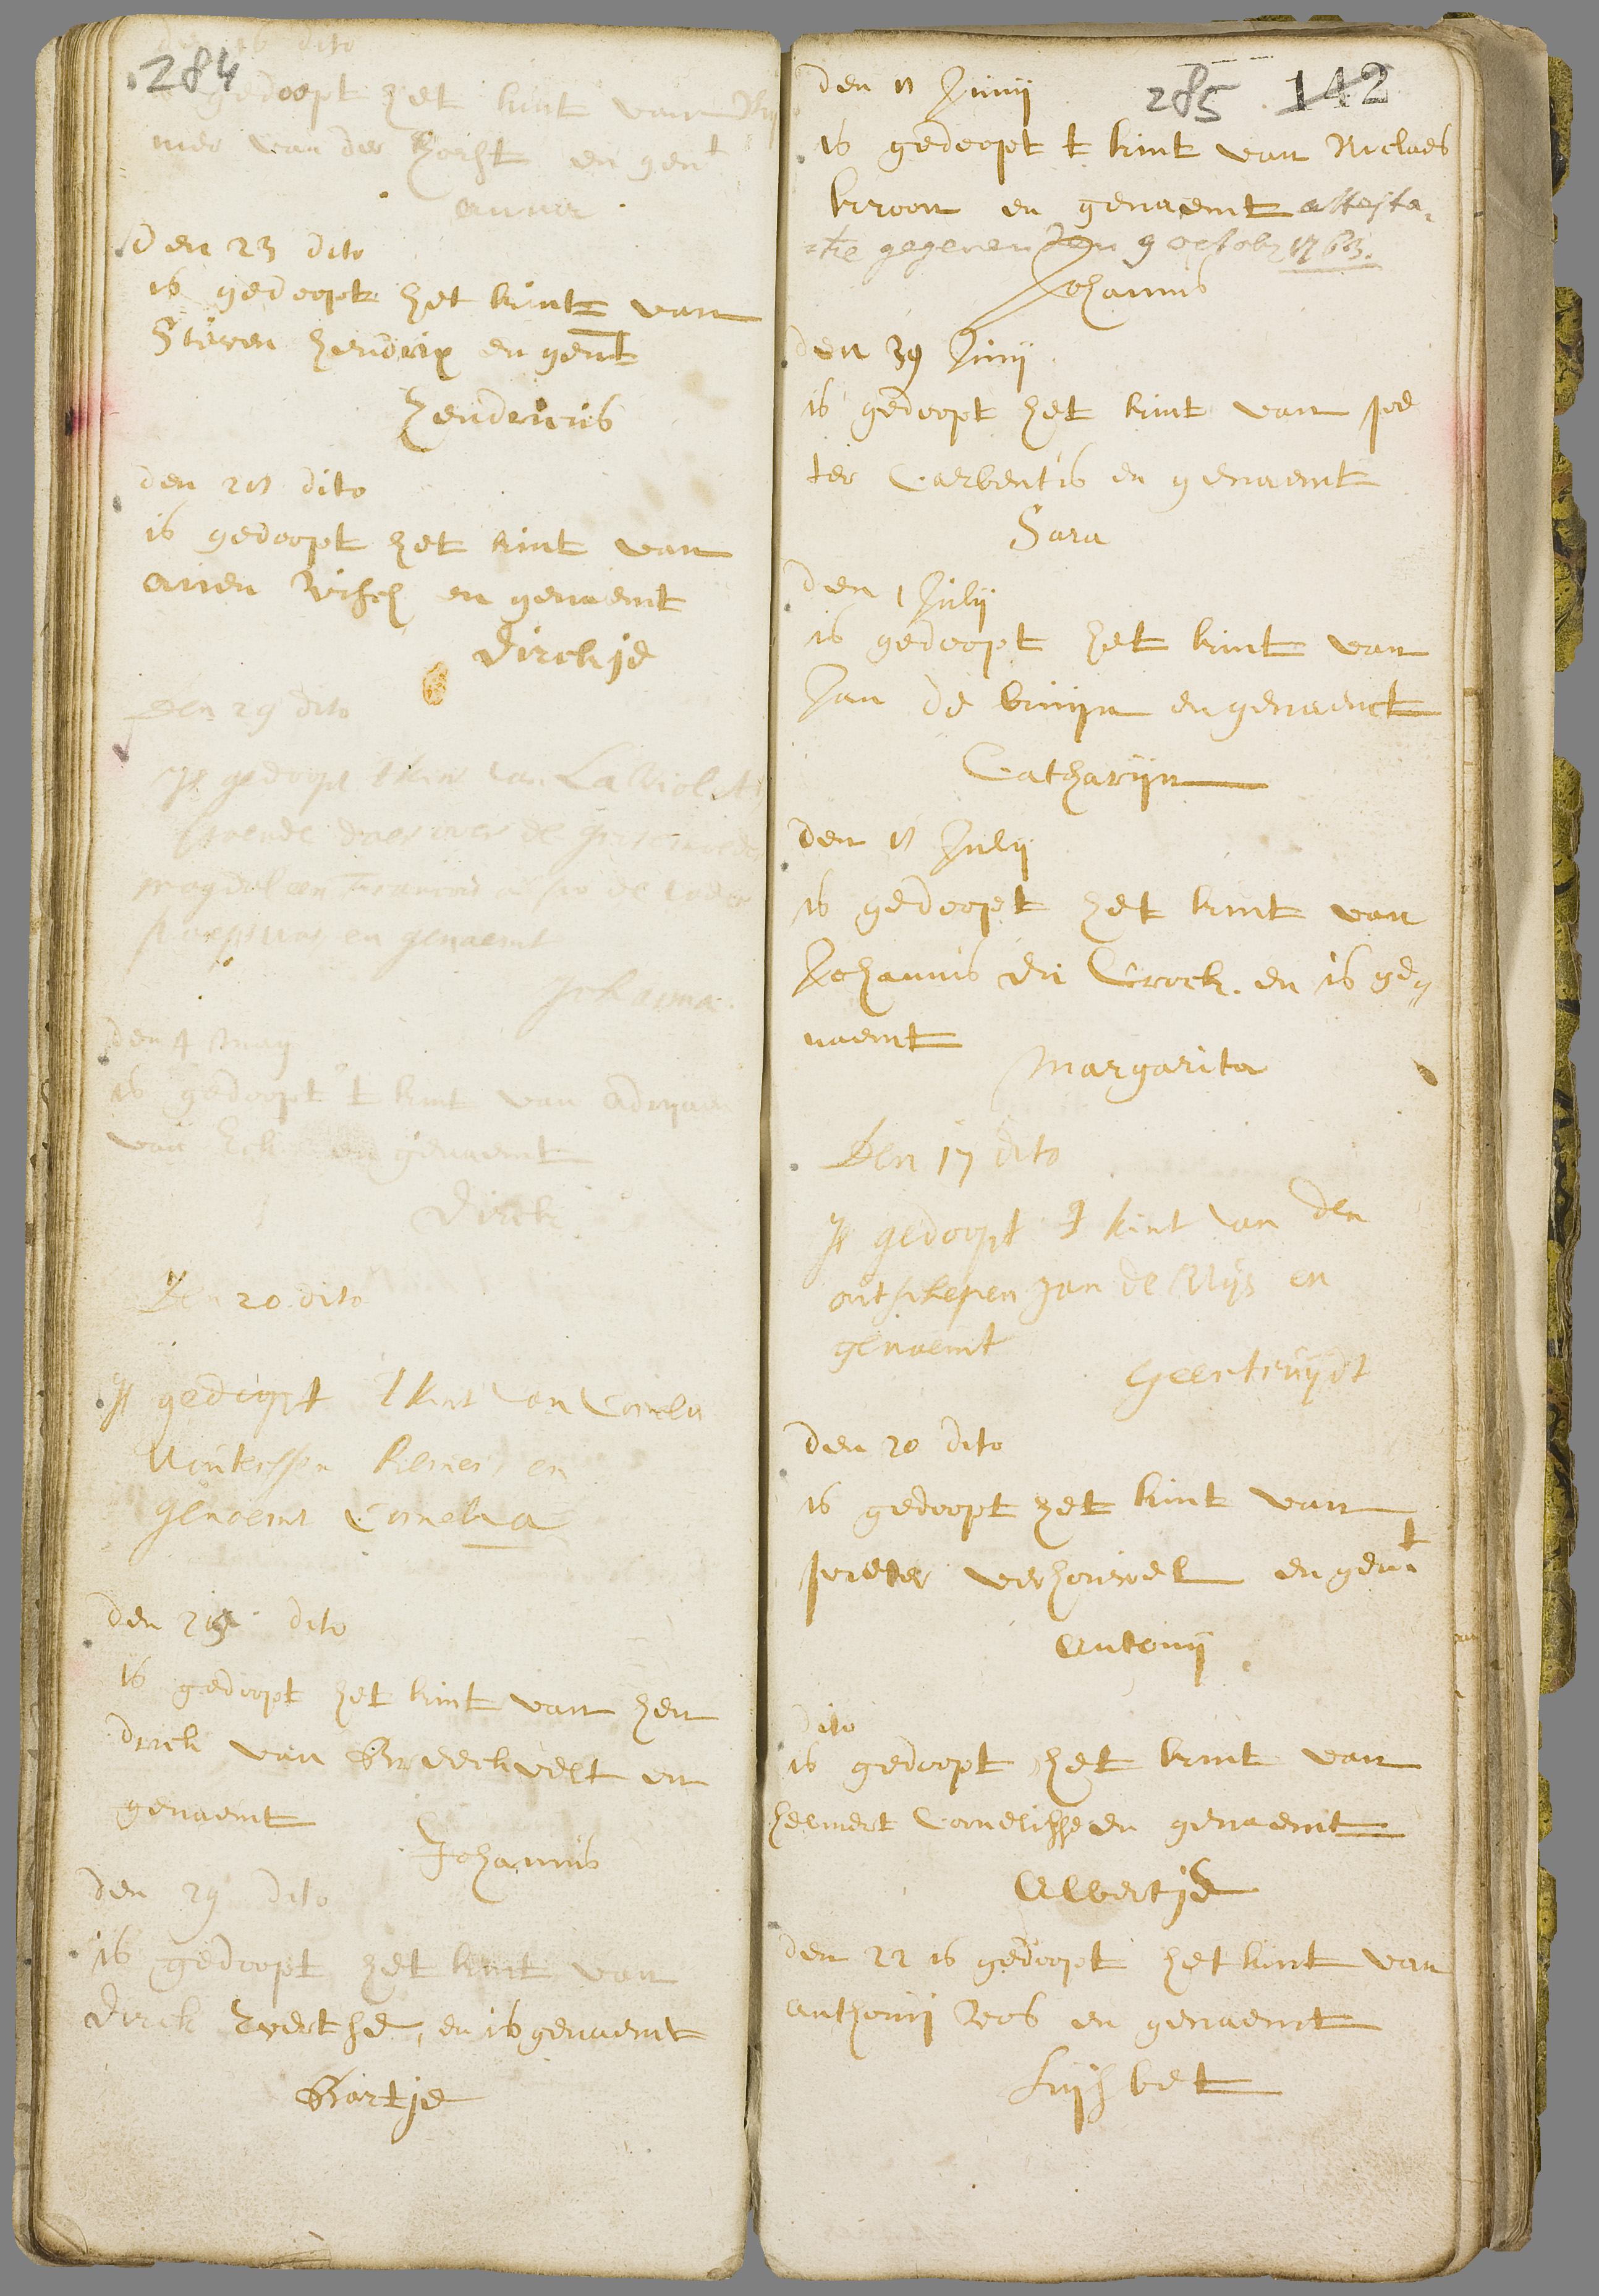 den 16 dito
284
is gedoopt het kint van
mer van der Horst en gent
anna
den 23 dito
is gedoopt het kint van
Steven hendrix en gent
hendricus
den 28 dito
is gedoopt het kint van
arien Visch en genaemt
Dirckje
Den 29 dito
Is gedoopt t kint van La Violet
en genaemt
Johanna
den 4 may
is gedoopt t kint van adriaen
van Eck en genaemt
Dirck
Den 20 dito
Is gedoopt t kint van Cornelis
Wouterssen en
genaemt Cornelia
den 25 dito
is gedoopt het kint van hen
drick van Broeckvelt en
genaemt
Johannis
den 29 dito
is gedoopt het kint van
Dirck Evertse, en is genaemt
Bartje
285 142
den 11 Junij
is gedoopt t kint van Niclaes
kroon en genaemt attesta„
„tie gegeven den 9 octob 1763.
Johannis
den 39 Junij
is gedoopt het kint van pee
ter Carbentis en genaemt
Sara
den 1 Julij
is gedoopt het kint van
Jan de bruijn en genaemt
Catharijn
den 11 Julij
is gedoopt het kint van
Johannis du Crock. en is ge„
naemt
Margarita
Den 17 dito
Is gedoopt t kint van den
outschepen Jan de Wijs en
genaemt
Geertruijdt
den 20 dito
is gedoopt het kint van
pieter verhoevel en gent
Antonij
dito
is gedoopt het kint van
helmert Cornelisse en genaemt
Albertje
den 22 is gedoopt het kint van
anthonij Vos en genaemt
Lijsbet